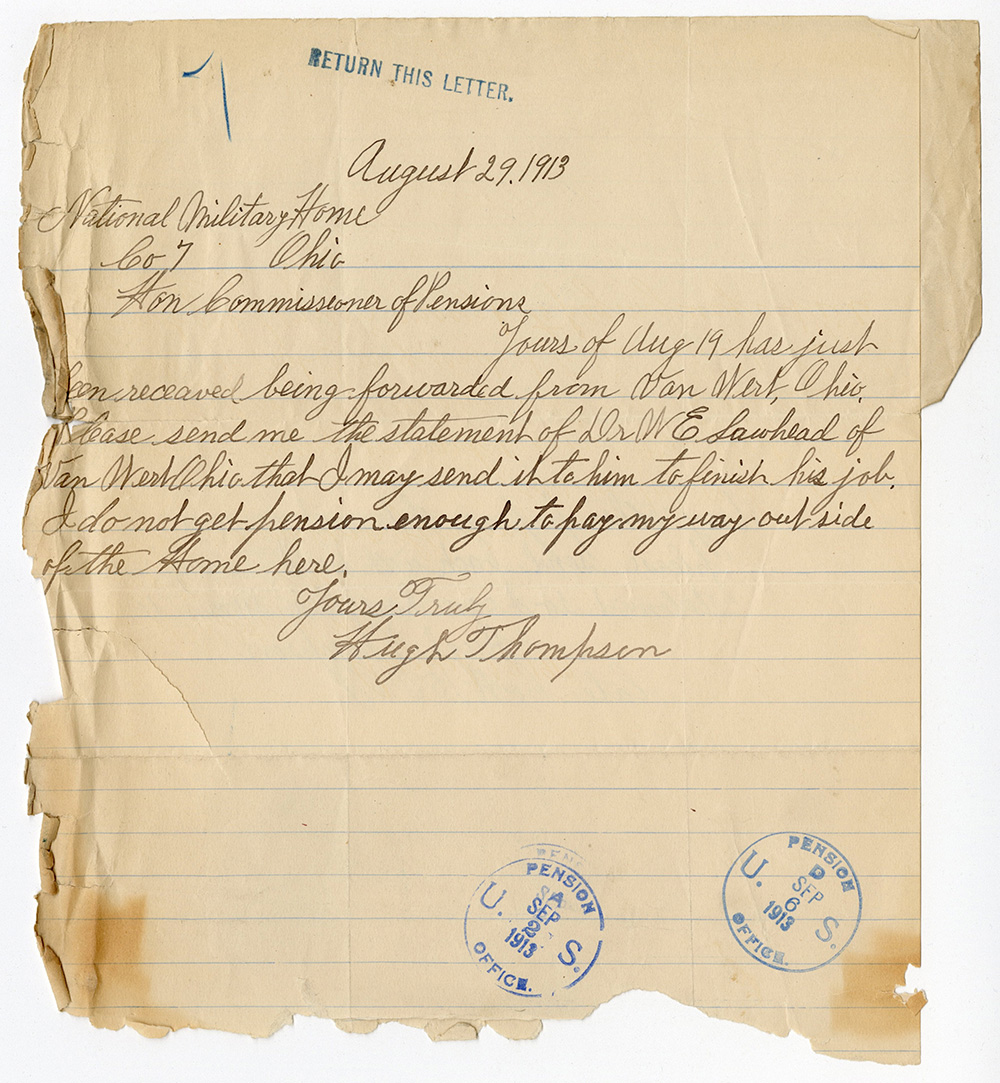 RETURN THIS LETTER.
August 29. 1913
National Military Home
Co 7 Ohio
Hon Commissioner of Pensions
Yours of Aug 19 has just
been receaved being forwarded from Van Wert, Ohio.
Please send me the statement of Dr W E Lawhead of
Van Wert Ohio that I may send it to him to finish his job.
I do not get pension enough to pay my way out side
of the Home here.
Yours Truly
Hugh Thompson
PENSION
A
SEP
2
1913
U. S.
OFFICE.
PENSION
D
SEP
6
1913
U. S.
OFFICE.